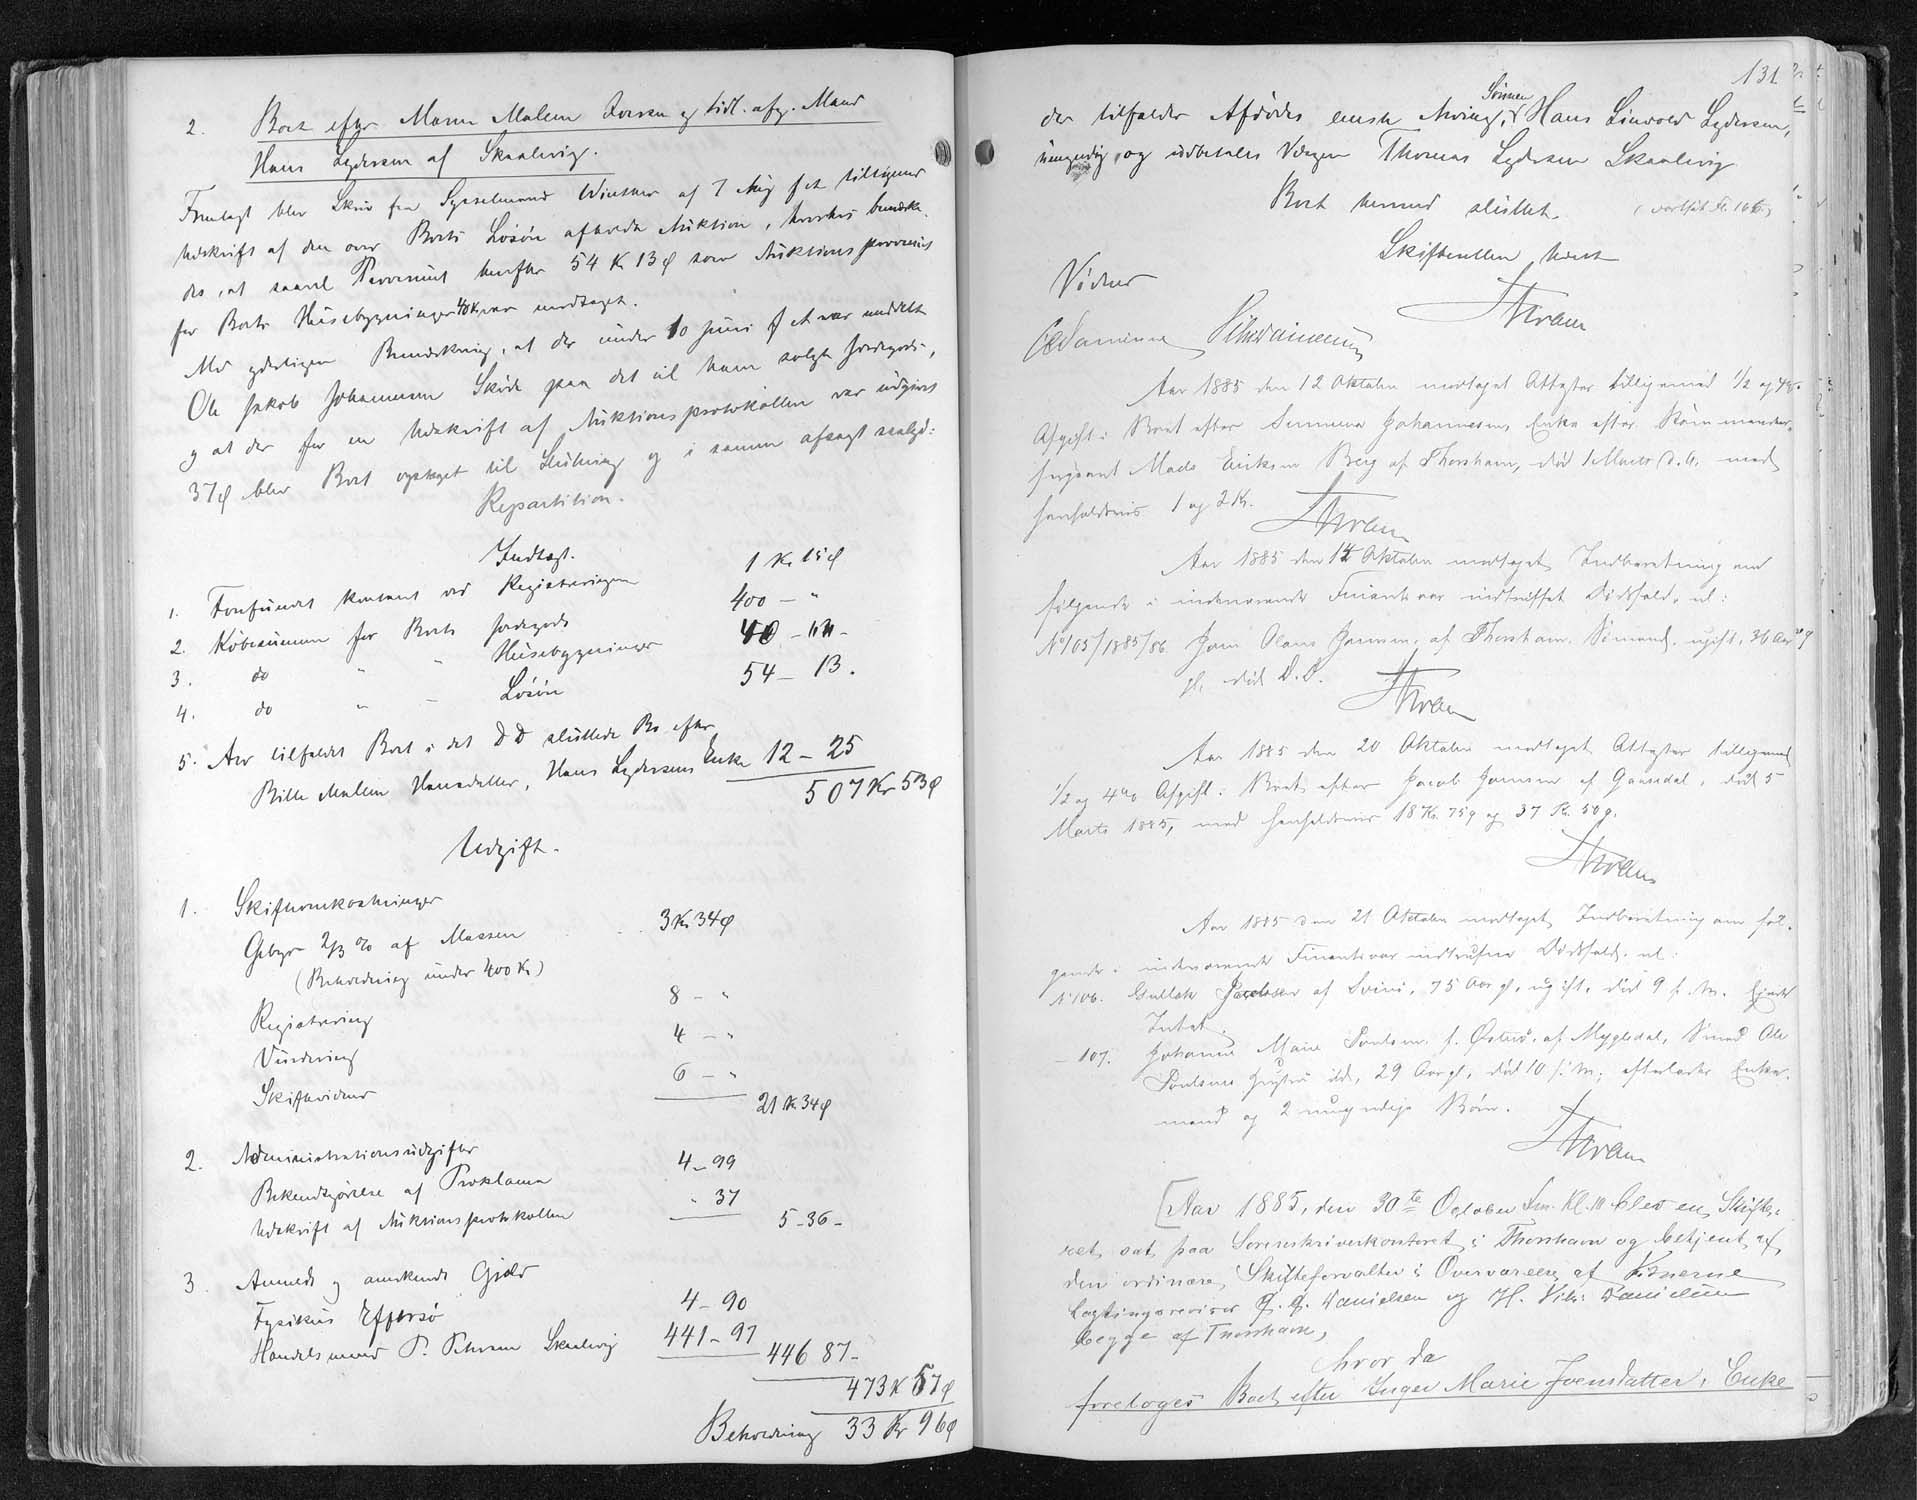 2. Boet efter Maren Malene Joensen og tidl. afg. Mand
Hans Lydersen af Skaalevig.
Fremlagt blev Skriv fra Sysselmand Winther af 7 Aug f A tilligemed
Udskrift af den over Boets Løsøre afholdte Auktion, hvorhos bemærke-
des, at saavel Provenuet herefter 54 Kr 13 Ø som Auktionsprovenuet
for Boets Husebygninger 40 Kr var modtaget.
Med yderligere Bemærkning, at der under 10 Juni f A var meddelt
Ole Jakob Johannesen Skøde paa det til ham solgte Jordegods,
og at der for en Udskrift af Auktionsprotokollen var udgivet
37 Ø blev Boet optaget til Slutning og i samme afsagt saalyd:
Repartition.
Indtægt.
1. Forefundet kontant ved Registreringen 1 Kr 15 Ø
2. Købesummen for Boets Jordegods 400 — "
3. do " " Husebygninger 40 - " -
4. do " - Løsøre 54 — 13.
5. Arv tilfaldet Boet i det D D sluttede Bo efter
Bille Malene Hansdatter, Hans Lydersens Enke 12 — 25
507 Kr 53 Ø
Udgift.
1. Skifteomkostninger
Gebyr 2/3 % af Massen 3 Kr 34 Ø
(Beholdning under 400 Kr)
Registrering 8 — "
Vurdering 4 — "
Skiftevidner 6 — "
21 Kr 34 Ø
2. Administrationsudgifter
Bekendtgørelse af Proklama 4 - 99
Udskrift af Auktionsprotokollen " 37
5 - 36 -
3. Anmeldt og anerkendt Gjæld
Fysikus Effersø 4 - 90
Handelsmand P. Petersen Skaalevig 441 - 97
446 87 -
473 Kr 57 Ø
Beholdning 33 Kr 96 Ø
131
Sønnen
der tilfalder Afdødes eneste Arving, Hans Linvold Lydersen,
umyndig, og udbetales Værgen Thomas Lydersen Skaalevig
Boet hermed sluttet.
Skifteretten hævet
Vidner
Aar 1885 den 12 Oktober modtaget Attester tilligemed 1/2 og 4%
Afgift i Boet efter Sunneva Johannesen, Enke efter Kommander-
sergeant Mads Eriksen Berg af Thorshavn, død 1 Marts d. A. med
henholdsvis 1 og 2 Kr.
Aar 1885 den 14 Oktober modtaget Indberetning om
følgende i indeværende Finantsaar indtruffet Dødsfald, nl:
No 105/1885/86. Joen Olaus Joensen, af Thorshavn, Sømand, ugift, 36 Aar
gl, død D. D.
Aar 1885 den 20 Oktober modtaget Attester tilligemed
1/2 og 4% Afgift i Boet efter Jacob Joensen af Gaasedal, død 5
Marts 1885, med henholdsvis 18 Kr. 75 Ø og 37 Kr. 50 Ø.
Aar 1885 den 21 Oktober modtaget Indberetning om føl-
gende i indeværende Finantsaar indtrufne Dødsfald, nl:
No 106. Gullak Jacobsen af Svinø, 75 Aar gl, ugift, død 9 f. M. Ejende
Intet.
— 107. Johanne Marie Poulsen, f. Østerø, af Mygledal, Smed Ole
Poulsens Hustru ibd, 29 Aar gl, død 10 f. M; efterlader Enke-
mand og 2 umyndige Børn.
Aar 1885, den 30te October Fm. Kl. 10 blev en Skifte-
ret sat paa Sorenskriverkontoret i Thorshavn og betjent af
den ordinære Skifteforvalter i Overværelse af Vidnerne
Lagtingsrevisor J. J. Danielsen og H. Vilh. Danielsen
begge af Thorshavn,
hvor da
foretoges Boet efter Inger Marie Joensdatter, Enke